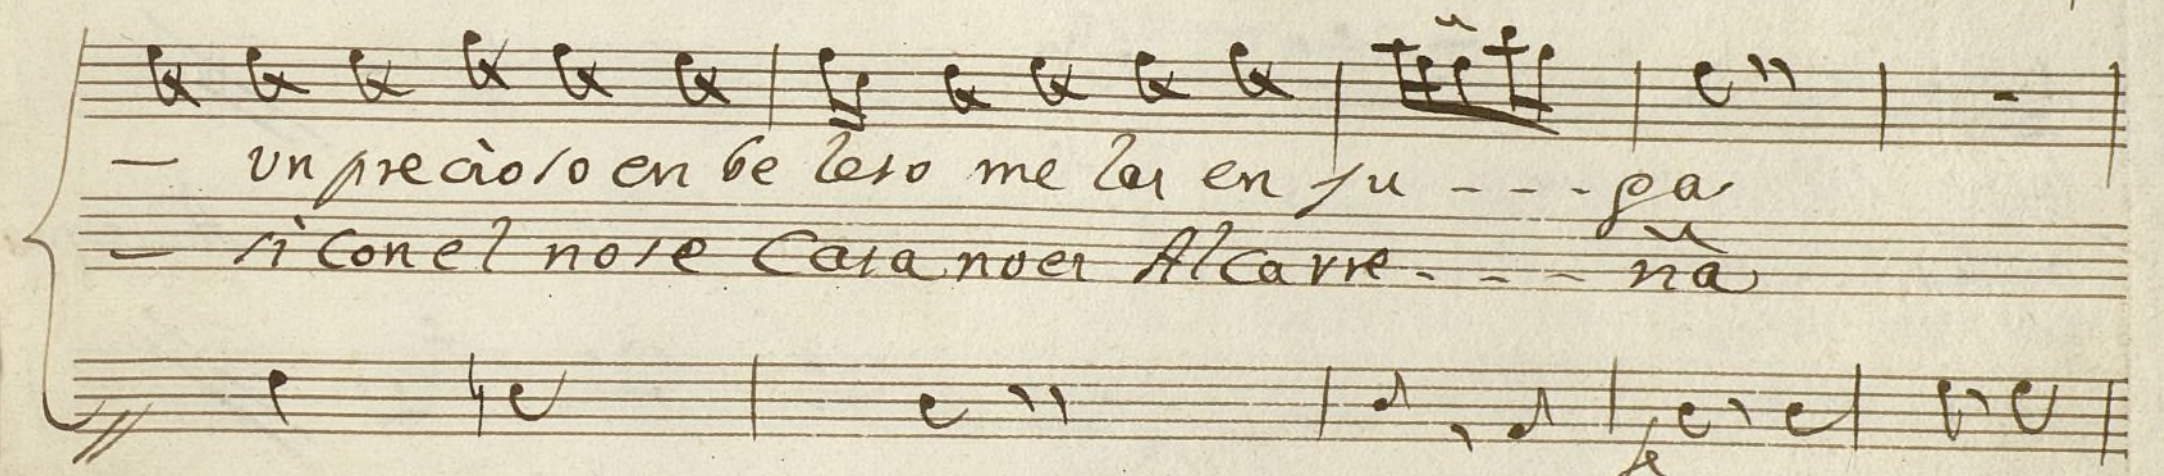 — un precioso en be leso me las en ju - - - ga
— si con el no se Casa no es Alcarre - - - ña